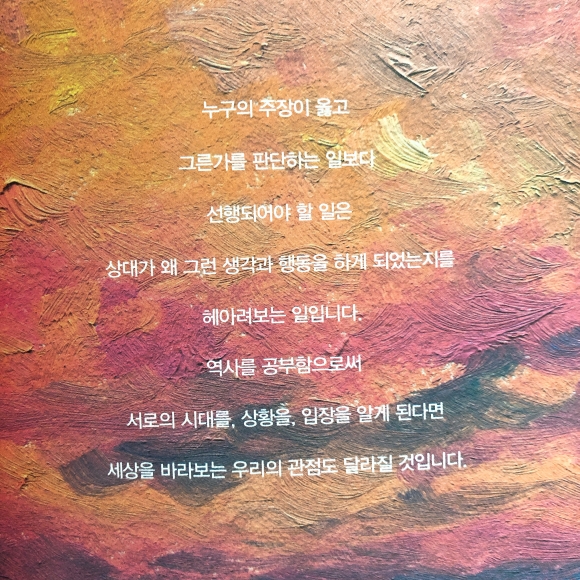 누구의 주장이 옳고
그른가를 판단하는 일보다
선행되어야 할 일은
상대가 왜 그런 생각과 행동을 하게 되었는지를
헤아려보는 일입니다.
역사를 공부함으로써
서로의 시대를, 상황을, 입장을 알게 된다면
세상을 바라보는 우리의 관점도 달라질 것입니다.